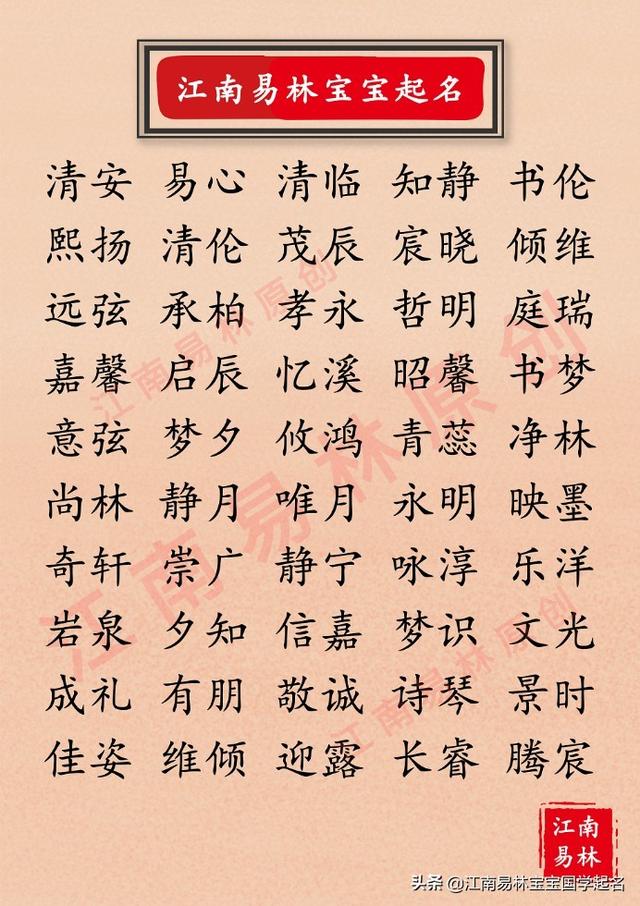 江南易林宝宝起名
清安 易心 清临 知静 书伦
熙扬 清伦 茂辰 宸晓 倾维
远弦 承柏 孝永 哲明 庭瑞
嘉馨 启辰 忆溪 昭馨 书梦
意弦 梦夕 攸鸿 青蕊 净林
尚林 静月 唯月 永明 映墨
奇轩 崇广 静宁 咏淳 乐洋
岩泉 夕知 信嘉 梦识 文光
成礼 有朋 敬诚 诗琴 景时
佳姿 维倾 迎露 长睿 腾宸
江南易林原创
江南易林原创
江南易林原创
江南
易林
头条 @江南易林宝宝国学起名